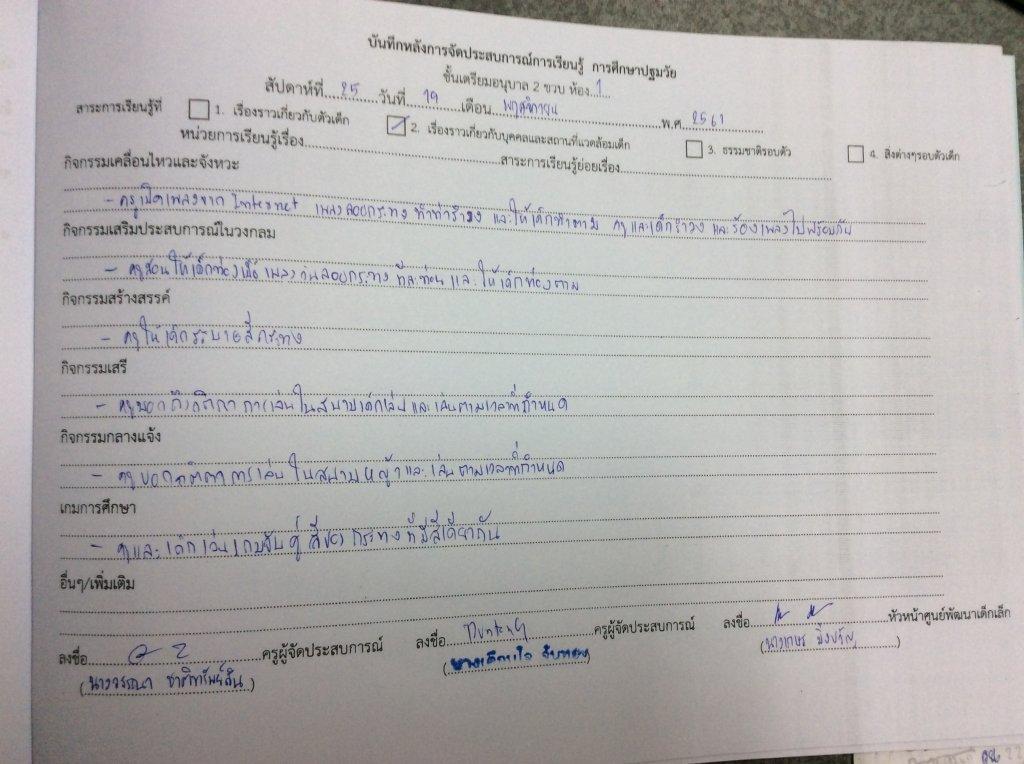 บันทึกหลังการจัดประสบการณ์การเรียนรู้ การศึกษาปฐมวัย
ชั้นเตรียมอนุบาล 2 ขวบ ห้อง...1...
สัปดาห์ที่ 25 วันที่ 19 เดือน พฤศจิกายน พ.ศ. 2561
สาระการเรียนรู้ที่ 1. เรื่องราวเกี่ยวกับตัวเด็ก 2. เรื่องราวเกี่ยวกับบุคคลและสถานที่แวดล้อมเด็ก 3. ธรรมชาติรอบตัว 4. สิ่งต่างๆรอบตัวเด็ก
หน่วยการเรียนรู้เรื่อง สาระการเรียนรู้ย่อยเรื่อง
กิจกรรมเคลื่อนไหวและจังหวะ
- ครูเปิดเพลงจาก Internet เพลงลอยกระทง ทำท่ารำวง และให้เด็กทำตาม ครูและเด็กรำวง และร้องเพลงไปพร้อมกัน
กิจกรรมเสริมประสบการณ์ในวงกลม
- ครูสอนให้เด็กท่องเนื้อเพลงวันลอยกระทง ทีละท่อน และให้เด็กท่องตาม
กิจกรรมสร้างสรรค์
- ครูให้เด็กระบายสีกระทง
กิจกรรมเสรี
- ครูบอกถึงกติกา การเล่นในสนามเด็กเล่น และเล่นตามเวลาที่กำหนด
กิจกรรมกลางแจ้ง
- ครูบอกกติกาการเล่นในสนามหญ้าและเล่นตามเวลาที่กำหนด
เกมการศึกษา
- ครูและเด็กเล่นเกมจับคู่สีของกระทงที่มีสีเดียวกัน
อื่นๆ/เพิ่มเติม
ลงชื่อ ครูผู้จัดประสบการณ์ ลงชื่อ ครูผู้จัดประสบการณ์ ลงชื่อ หัวหน้าศูนย์พัฒนาเด็กเล็ก